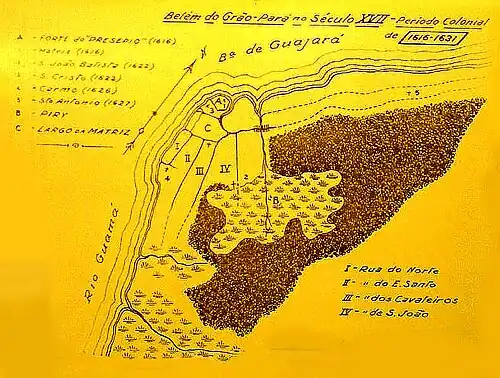 Belém do Grão-Pará no Século XVII - Período Colonial
de 1616-1631
A - FORTE do "PRESEPIO" (1616)
- Matriz (1616)
- S. João Batista (1622)
3 - S. Cristo (1622)
4 - Carmo (1626)
5 - Sto Antonio (1627)
B - PIRY
C - LARGO DA MATRIZ
Bª de Guajará
Rio Guamá
A
1
3
C
I
II
III
IV
2
4
+5
B
I - Rua do Norte
II - " do E. Santo
III - " dos Cavaleiros
IV - " de S. João